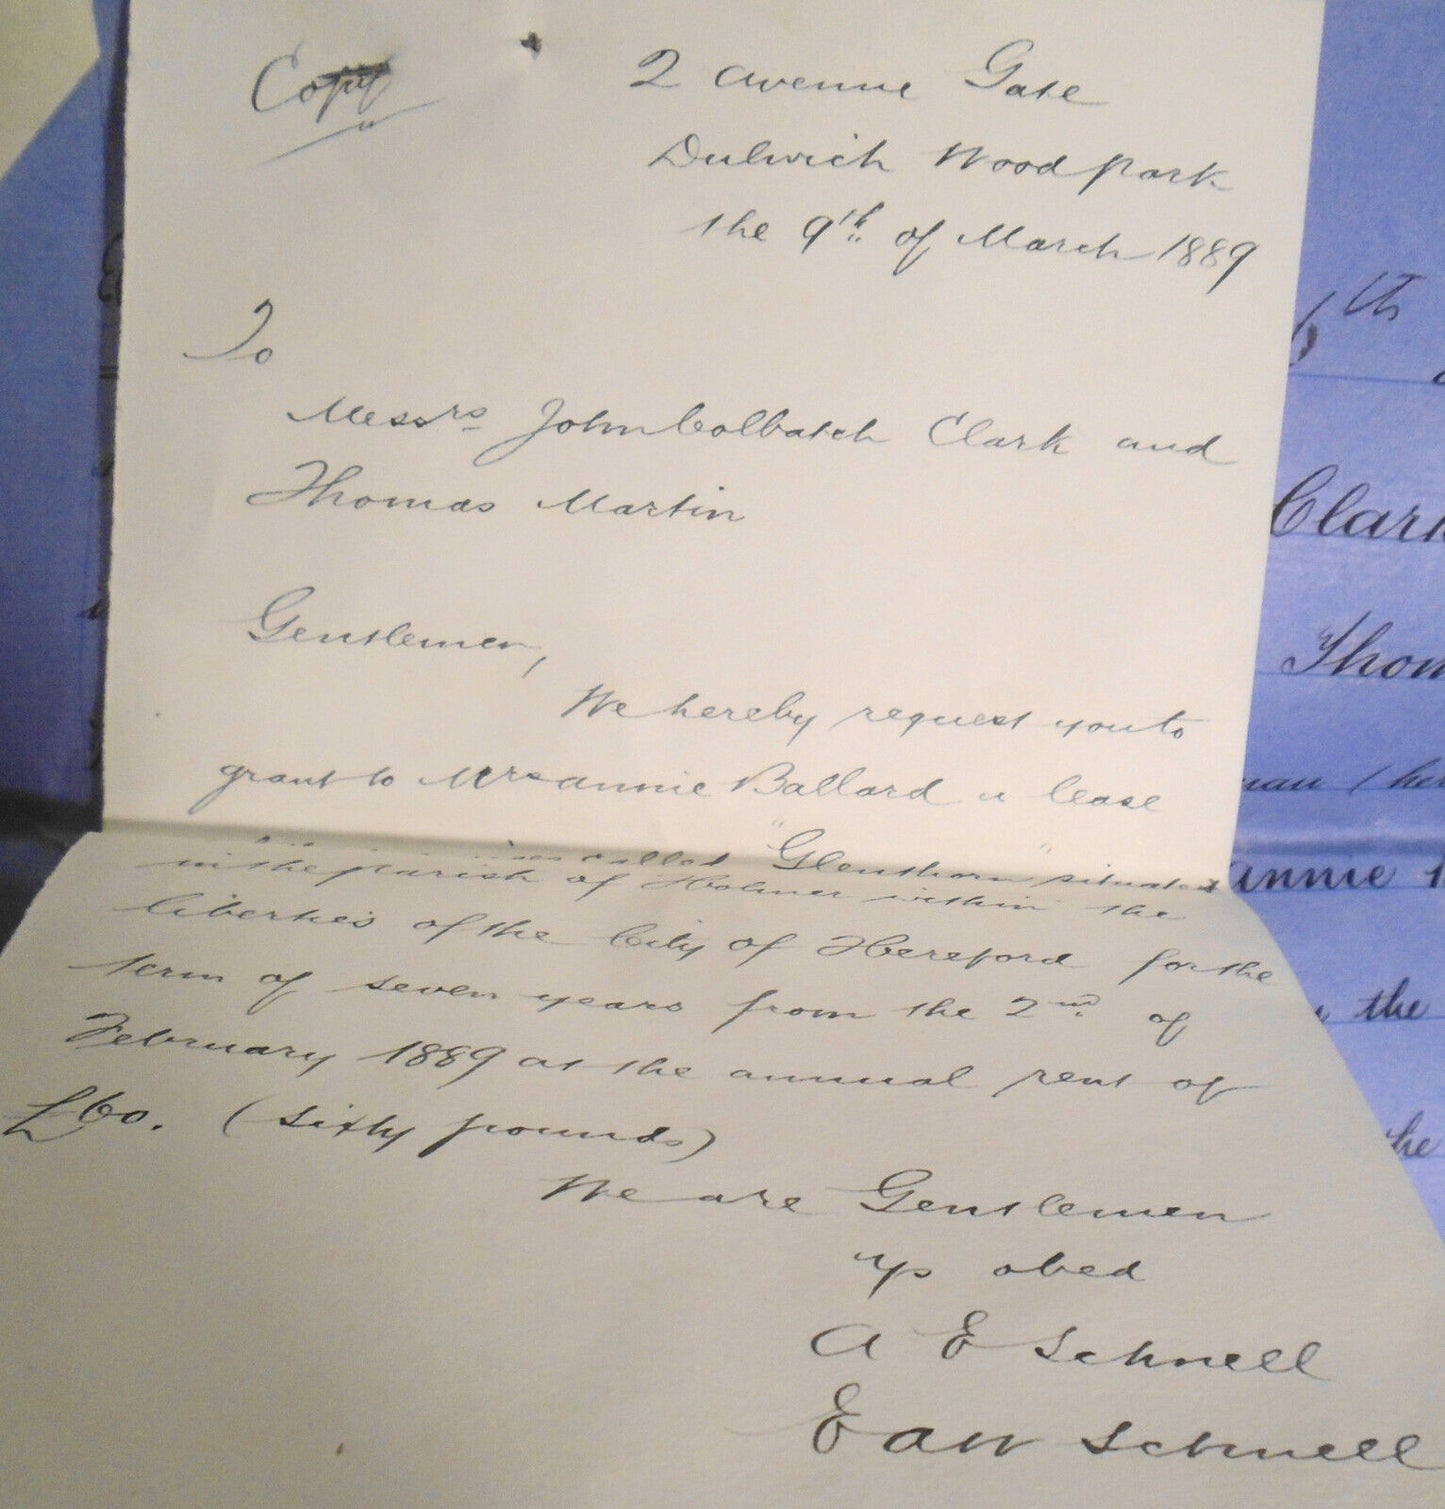 Copy
2 Avenue Gate
Dulwich Wood Park
the 9th of March 1889
To
Messrs John Colbatch Clark and
Thomas Martin
Gentlemen,
We hereby request you to
grant to Mrs Annie Ballard a lease
called "Glenthorn" situated
in the parish of Holmer within the
liberties of the City of Hereford for the
term of seven years from the 2nd of
February 1889 at the annual rent of
£60. (sixty pounds)
We are Gentlemen
Yrs obed
A E Schnell
E A W Schnell
6th
Clark
Thom
man / her
Annie B
the
the